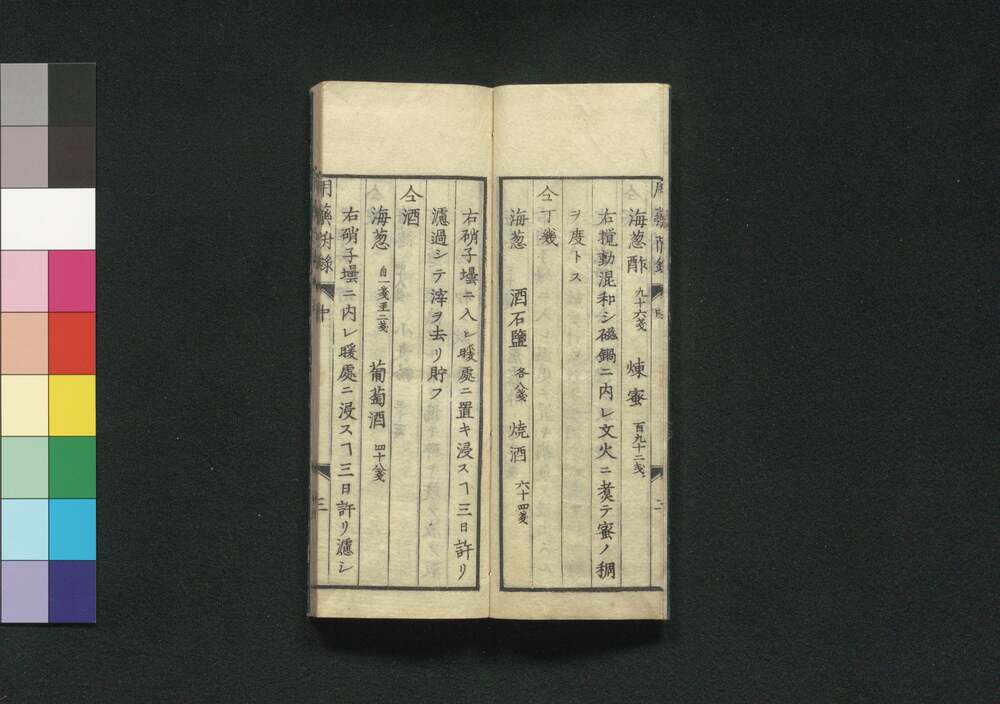 海葱酢 九十六戔 煉蜜 百九十二戔
右攪動混和シ磁鍋ニ内レ文火ニ煑テ蜜ノ稠
ヲ度トス
仝丁幾
海葱 酒石鹽 各八戔 焼酒 六十四戔
右硝子壜ニ入レ暖處ニ置キ浸スヿ三日許リ
濾過シテ滓ヲ去リ貯フ
仝酒
海葱 自一戔至二戔 葡萄酒 四十八戔
右硝子壜ニ内レ暖處ニ浸スヿ三日許リ濾シ
中
三